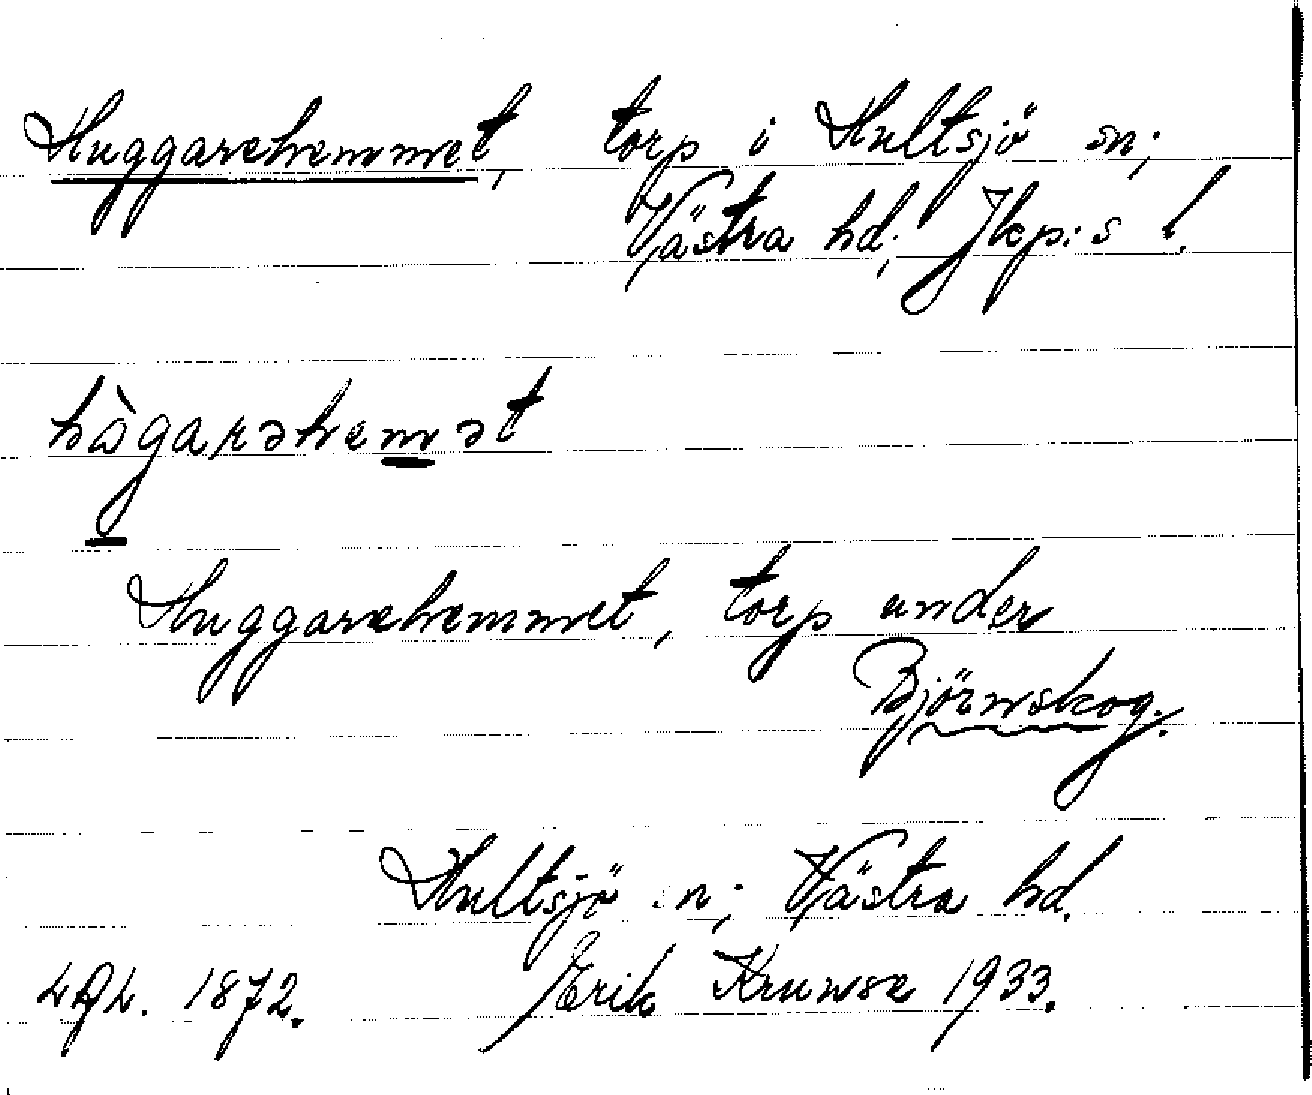 Huggarehemmet, torp i Hultsjö sn;
Västra hd; Jkp:s l.
hògarəhemət
Huggarehemmet, torp under
Björnskog.
Hultsjö sn; Västra hd.
1872. Erik Krunse 1933.